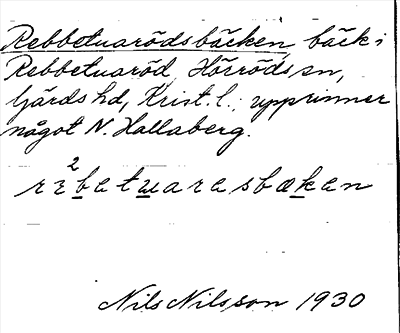 Rebbetuarödsbäcken, bäck i
Rebbetuaröd, Hörröds sn,
Gärds hd, Krist. l.; upprinner
något N. Hallaberg.
2
rebetuaresbækan
Nils Nilsson 1930